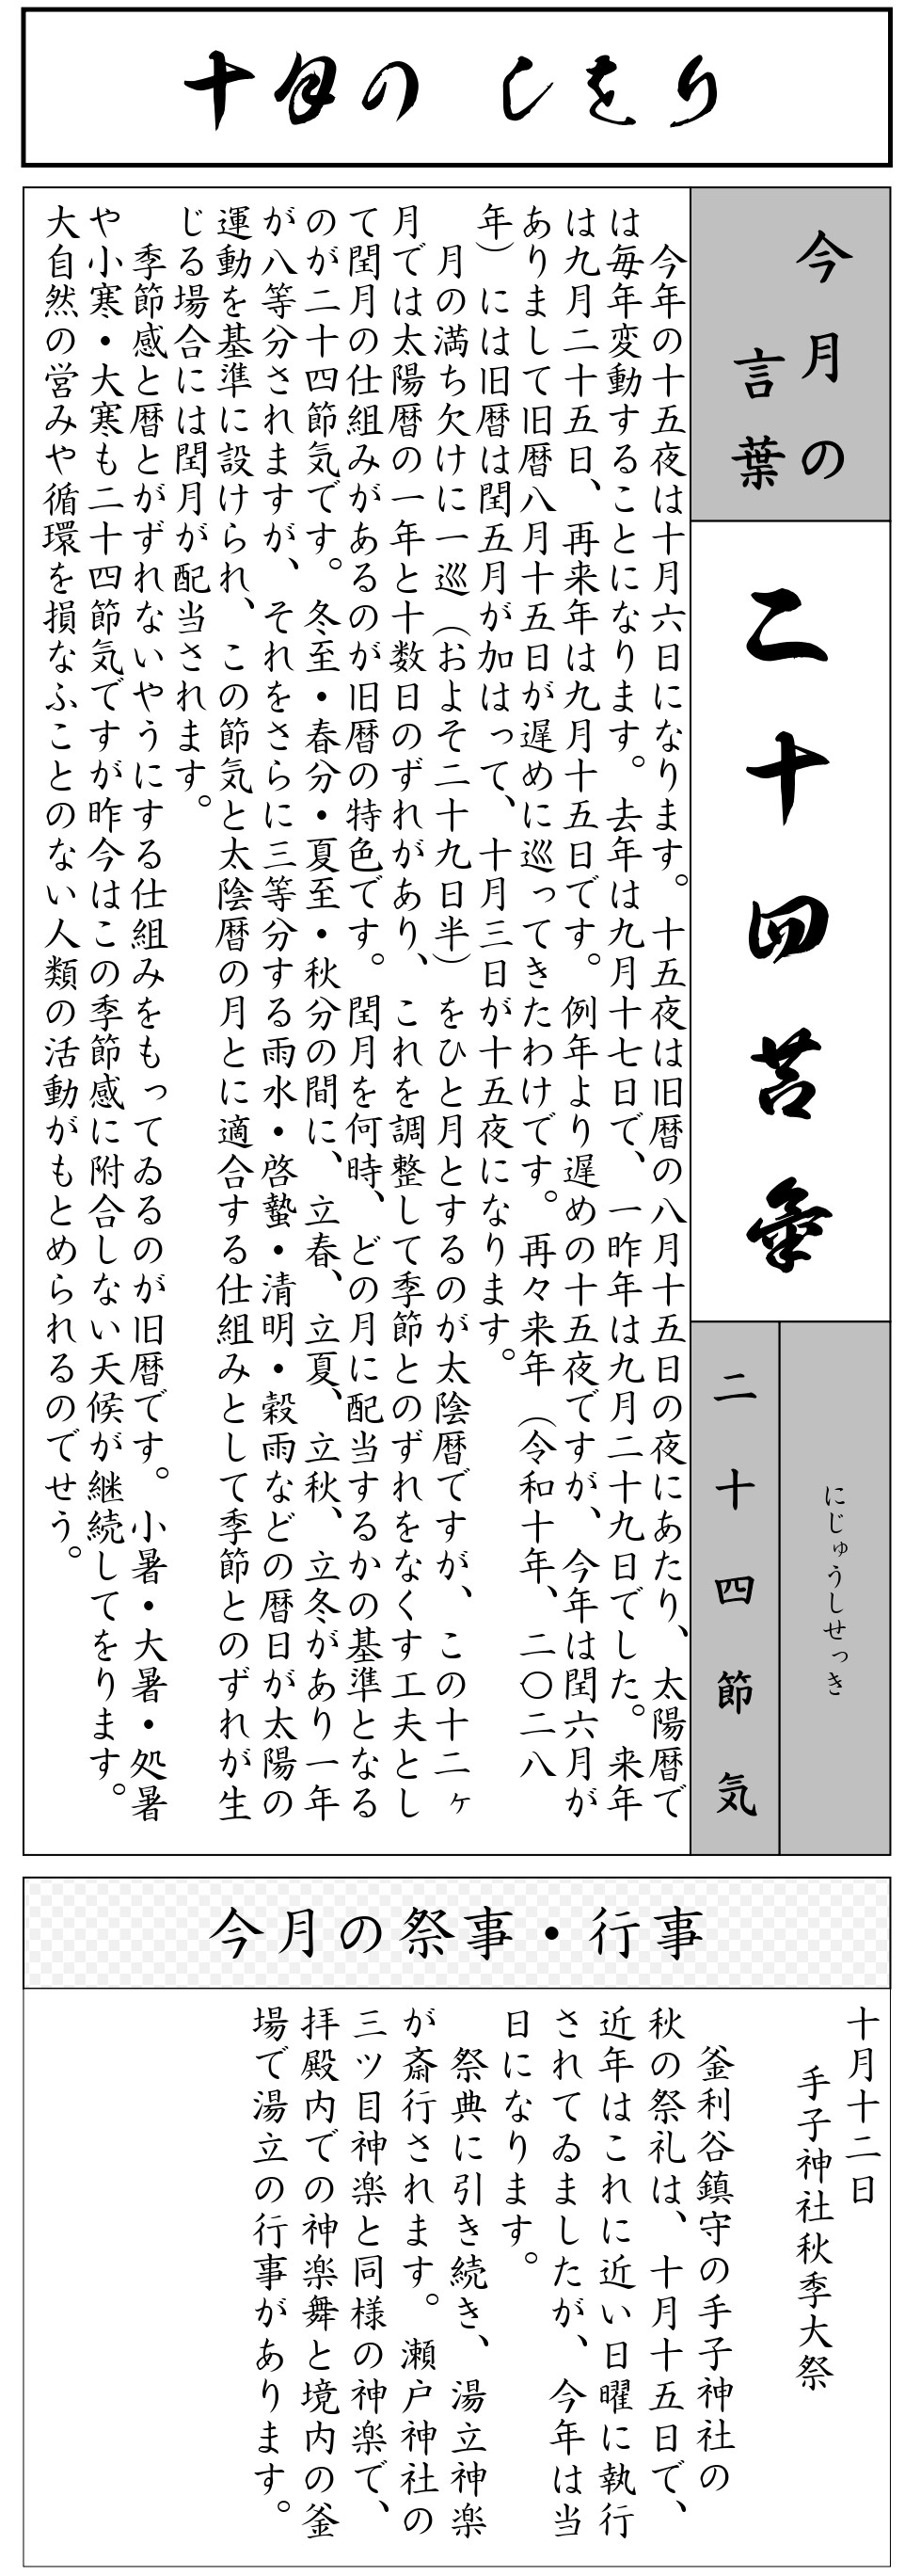 十月の しをり
今月の
言葉
二十四節氣
にじゅうしせっき
二十四節気
今年の十五夜は十月六日になります。十五夜は旧暦の八月十五日の夜にあたり、太陽暦で
は毎年変動することになります。去年は九月十七日で、一昨年は九月二十九日でした。来年
は九月二十五日、再来年は九月十五日です。例年より遅めの十五夜ですが、今年は閏六月が
ありまして旧暦八月十五日が遅めに巡ってきたわけです。再々来年（令和十年、二〇二八
年）には旧暦は閏五月が加はって、十月三日が十五夜になります。
月の満ち欠けに一巡（およそ二十九日半）をひと月とするのが太陰暦ですが、この十二ヶ
月では太陽暦の一年と十数日のずれがあり、これを調整して季節とのずれをなくす工夫とし
て閏月の仕組みがあるのが旧暦の特色です。閏月を何時、どの月に配当するかの基準となる
のが二十四節気です。冬至・春分・夏至・秋分の間に、立春、立夏、立秋、立冬があり一年
が八等分されますが、それをさらに三等分する雨水・啓蟄・清明・穀雨などの暦日が太陽の
運動を基準に設けられ、この節気と太陰暦の月とに適合する仕組みとして季節とのずれが生
じる場合には閏月が配当されます。
季節感と暦とがずれないやうにする仕組みをもってゐるのが旧暦です。小暑・大暑・処暑
や小寒・大寒も二十四節気ですが昨今はこの季節感に附合しない天候が継続してをります。
大自然の営みや循環を損なふことのない人類の活動がもとめられるのでせう。
今月の祭事・行事
十月十二日
手子神社秋季大祭
釜利谷鎮守の手子神社の
秋の祭礼は、十月十五日で、
近年はこれに近い日曜に執行
されてゐましたが、今年は当
日になります。
祭典に引き続き、湯立神楽
が斎行されます。瀬戸神社の
三ツ目神楽と同様の神楽で、
拝殿内での神楽舞と境内の釜
場で湯立の行事があります。